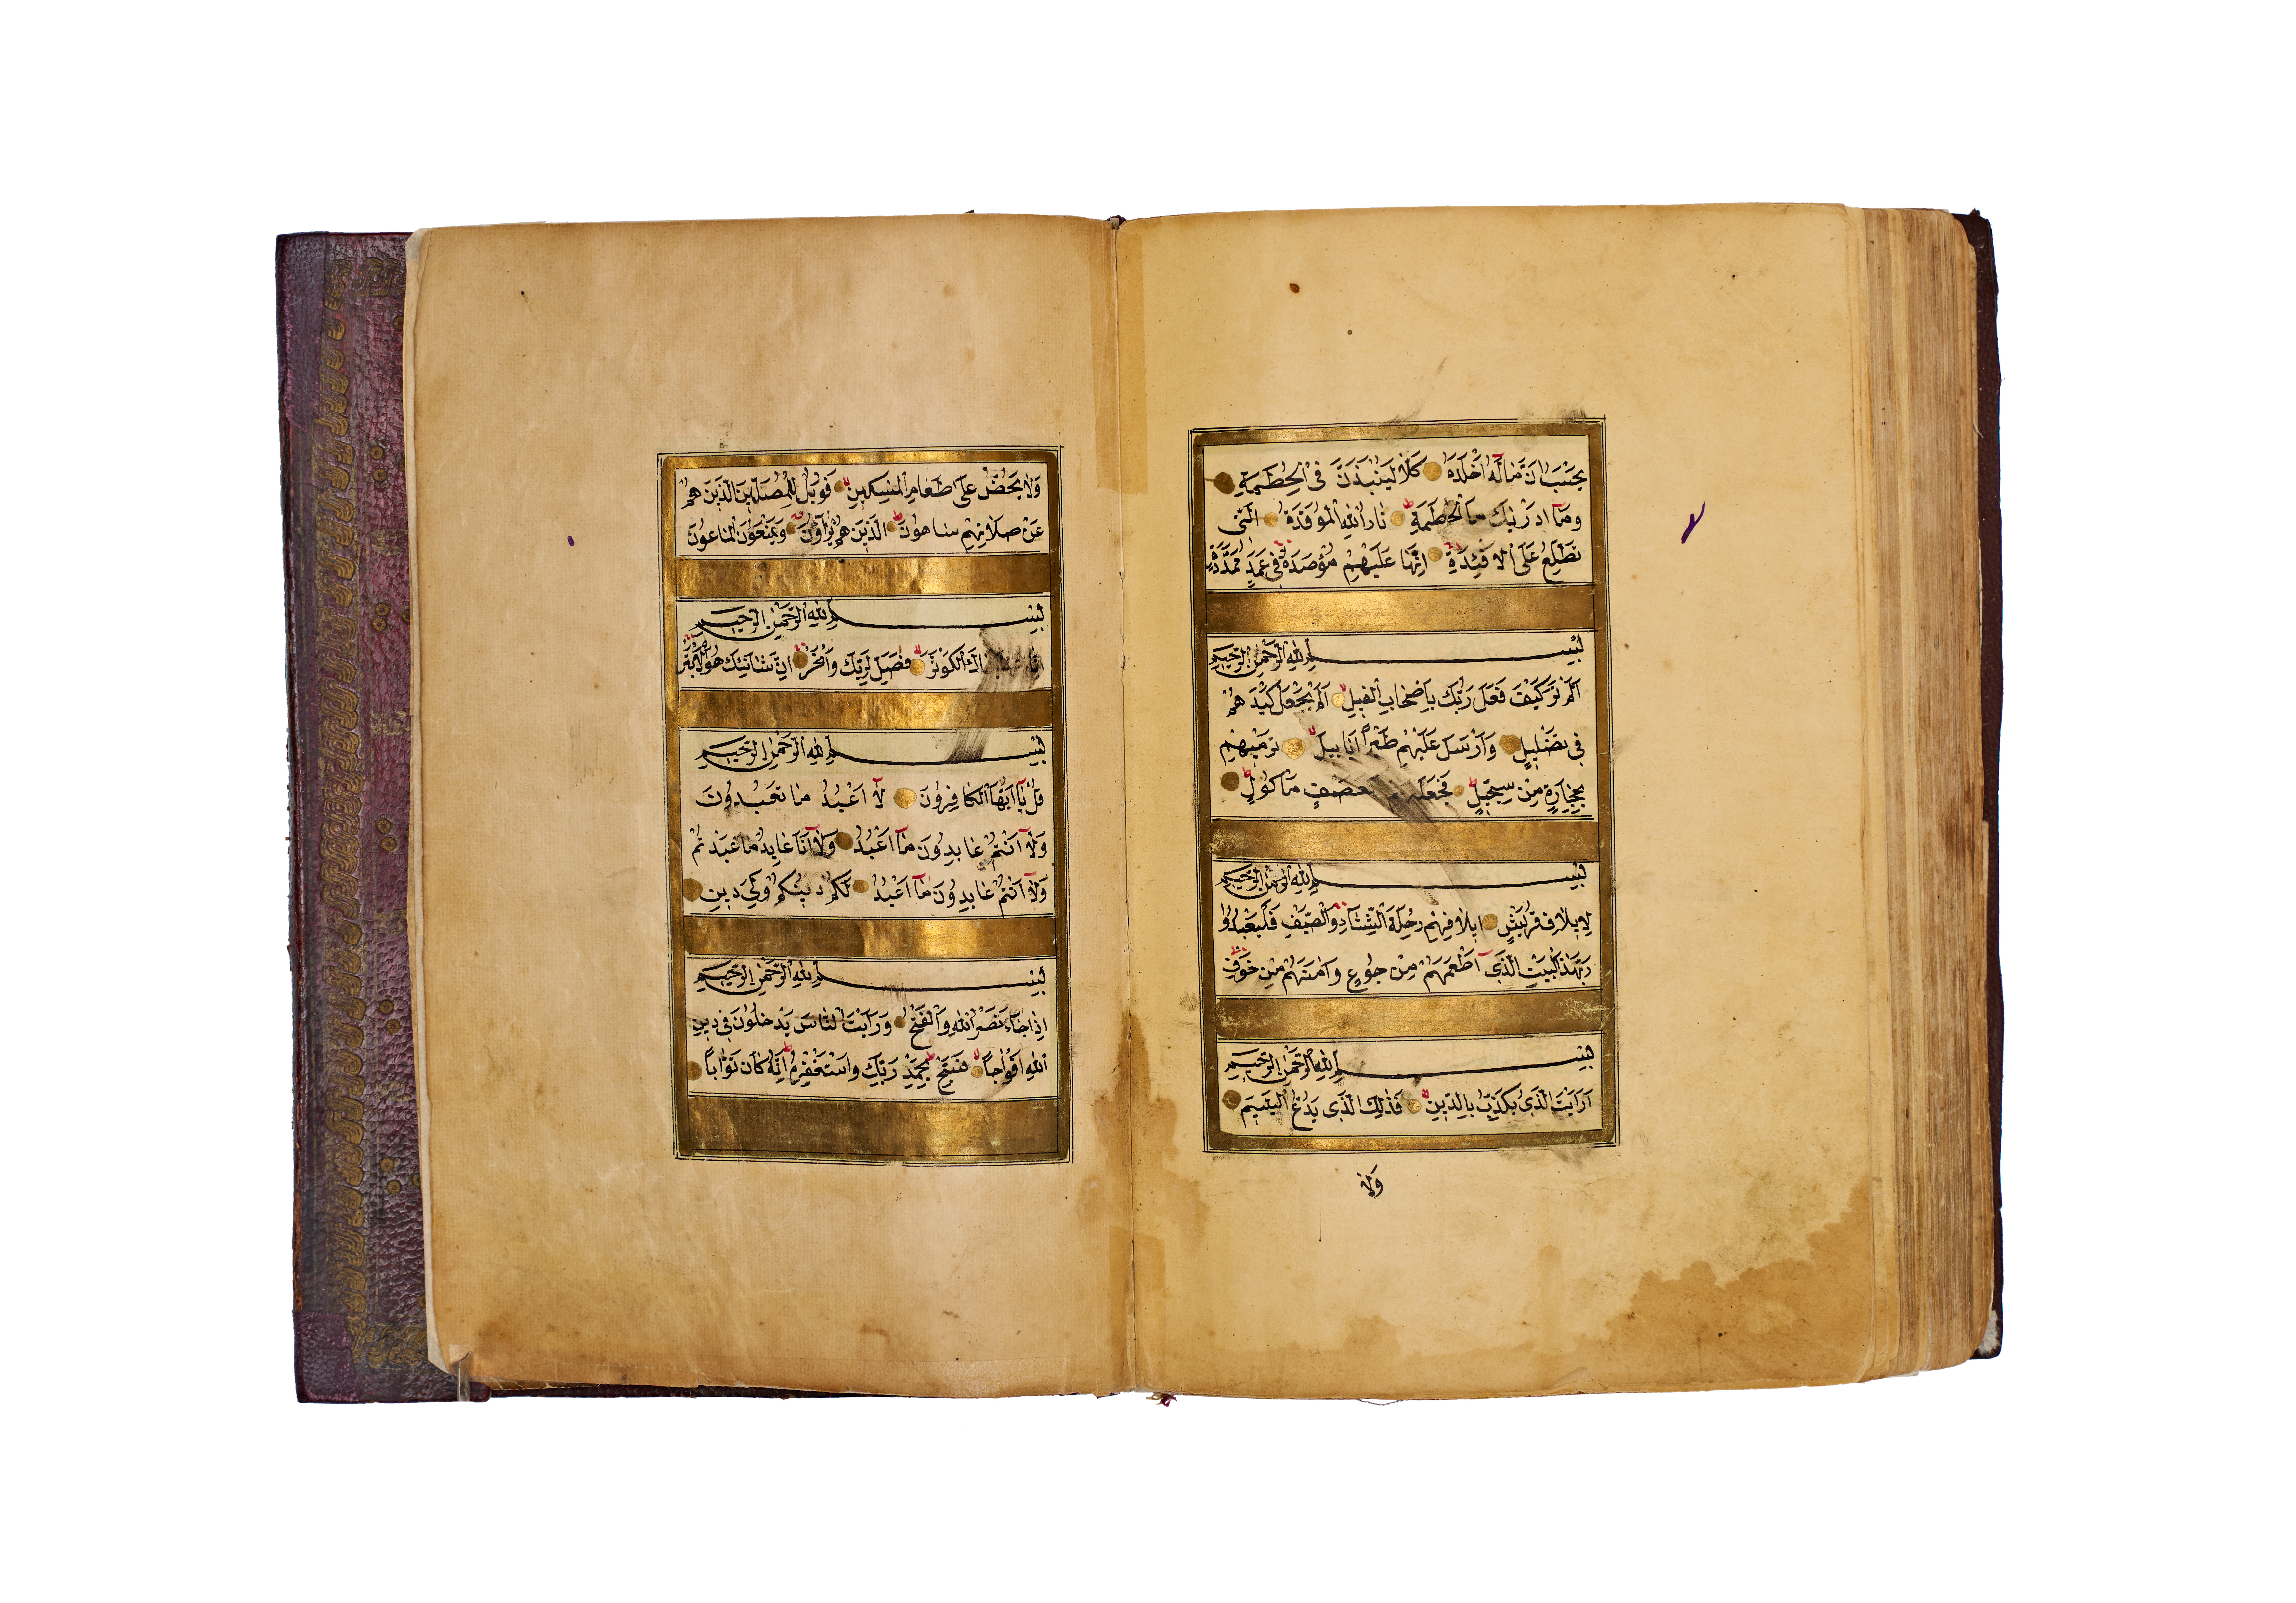 يَحْسَبُ اَنَّ مَالَهُٓ اَخْلَدَهُ كَلَّا لَيُنْبَذَنَّ فِى الْحُطَمَةِ
وَمَآ اَدْرٰيكَ مَا الْحُطَمَةِ نَارُ اللّٰهِ الْمُوقَدَةُ الَّتٖى
تَطَّلِعُ عَلَى الْاَفْئِدَةِ اِنَّهَا عَلَيْهِمْ مُؤْصَدَةٌ فٖى عَمَدٍ مُمَدَّدَةٍ
بِسْمِ اللّٰهِ الرَّحْمٰنِ الرَّحٖيمِ
اَلَمْ تَرَ كَيْفَ فَعَلَ رَبُّكَ بِاَصْحَابِ الْفٖيلِ اَلَمْ يَجْعَلْ كَيْدَهُمْ
فٖى تَضْلٖيلٍ وَاَرْسَلَ عَلَيْهِمْ طَيْرًا اَبَابٖيلَ تَرْمٖيهِمْ
بِحِجَارَةٍ مِنْ سِجّٖيلٍ فَجَعَلَهُمْ كَعَصْفٍ مَاْكُولٍ
بِسْمِ اللّٰهِ الرَّحْمٰنِ الرَّحٖيمِ
لِاٖيلَافِ قُرَيْشٍ اٖيلَافِهِمْ رِحْلَةَ الشِّتَآءِ وَالصَّيْفِ فَلْيَعْبُدُوا
رَبَّ هٰذَا الْبَيْتِ الَّذٖٓى اَطْعَمَهُمْ مِنْ جُوعٍ وَاٰمَنَهُمْ مِنْ خَوْفٍ
بِسْمِ اللّٰهِ الرَّحْمٰنِ الرَّحٖيمِ
اَرَاَيْتَ الَّذٖى يُكَذِّبُ بِالدّٖينِ فَذٰلِكَ الَّذٖى يَدُعُّ الْيَتٖيمَ
وَلَا
وَلَا يَحُضُّ عَلٰى طَعَامِ الْمِسْكٖينِ فَوَيْلٌ لِلْمُصَلّٖينَ الَّذٖينَ هُمْ
عَنْ صَلَاتِهِمْ سَاهُونَ الَّذٖينَ هُمْ يُرَآؤُنَ وَيَمْنَعُونَ الْمَاعُونَ
بِسْمِ اللّٰهِ الرَّحْمٰنِ الرَّحٖيمِ
اِنَّا الْكَوْثَرَ فَصَلِّ لِرَبِّكَ وَانْحَرْ اِنَّ شَانِئَكَ هُوَ الْاَبْتَرُ
بِسْمِ اللّٰهِ الرَّحْمٰنِ الرَّحٖيمِ
قُلْ يَآ اَيُّهَا الْكَافِرُونَ لَٓا اَعْبُدُ مَا تَعْبُدُونَ
وَلَٓا اَنْتُمْ عَابِدُونَ مَٓا اَعْبُدُ وَلَٓا اَنَا عَابِدٌ مَا عَبَدْتُمْ
وَلَٓا اَنْتُمْ عَابِدُونَ مَٓا اَعْبُدُ لَكُمْ دٖينُكُمْ وَلِىَ دٖينِ
بِسْمِ اللّٰهِ الرَّحْمٰنِ الرَّحٖيمِ
اِذَا جَآءَ نَصْرُ اللّٰهِ وَالْفَتْحُ وَرَاَيْتَ النَّاسَ يَدْخُلُونَ فٖى دٖينِ
اللّٰهِ اَفْوَاجًا فَسَبِّحْ بِحَمْدِ رَبِّكَ وَاسْتَغْفِرْهُ اِنَّهُ كَانَ تَوَّابًا